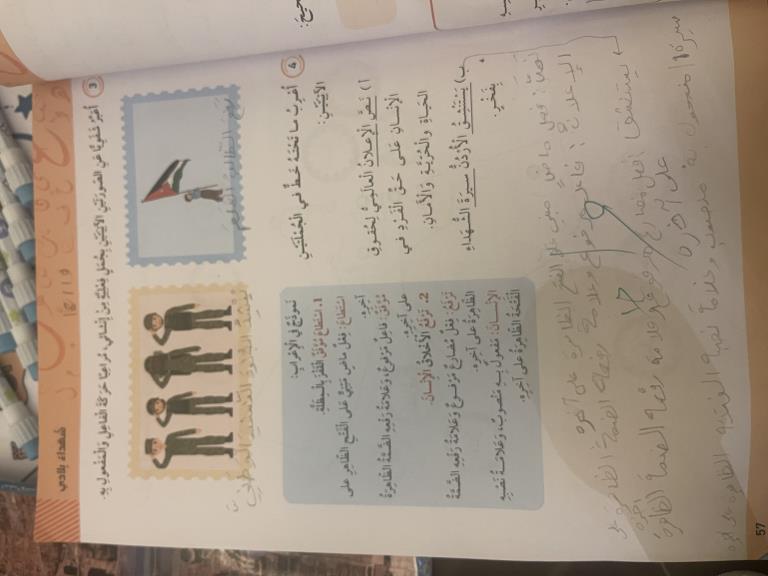 شهداء بلادي
3 أُعَبِّرُ شَفَوِيًّا عَنِ الصّورَتَيْنِ الْآتِيَتَيْنِ بِجُمَلٍ فِعْلِيَّةٍ مِنْ إِنْشائي، مُراعِيًا حَرَكَةَ الْفاعِلِ وَالْمَفْعولِ بِهِ.
4 أُعْرِبُ ما تَحْتَهُ خَطٌّ في الْجُمْلَتَيْنِ
الْآتِيَتَيْنِ:
أ) نَصَّ الْإِعْلانُ الْعالَمِيُّ لِحُقوقِ
الْإِنْسانِ عَلى حَقِّ الْفَرْدِ في
الْحَياةِ وَالْحُرِّيَّةِ وَالْأَمانِ.
ب) يَسْتَنْشِقُ الْأُرْدُنُّ سيرَةَ الشُّهَداءِ
بِفَخْرٍ.
نَموذَجٌ في الْإِعْرابِ:
1. اسْتَطاعَ مُوَفَّقٌ الْقَفْزَ بِالْمِظَلَّةِ.
اسْتَطاعَ: فِعْلٌ ماضٍ مَبْنِيٌّ عَلى الْفَتْحِ الظّاهِرِ عَلى
آخِرِهِ.
مُوَفَّقٌ: فاعِلٌ مَرْفوعٌ، وَعَلامَةُ رَفْعِهِ الضَّمَّةُ الظّاهِرَةُ
عَلى آخِرِهِ.
2. تَرْفَعُ الْأَخْلاقُ الْإِنْسانَ.
تَرْفَعُ: فِعْلٌ مُضارِعٌ مَرْفوعٌ وَعَلامَةُ رَفْعِهِ الضَّمَّةُ
الظّاهِرَةُ عَلى آخِرِهِ.
الْإِنْسانَ: مَفْعولٌ بِهِ مَنْصوبٌ، وَعَلامَةُ نَصْبِهِ
الْفَتْحَةُ الظّاهِرَةُ عَلى آخِرِهِ.
نصّ: فعل ماضٍ مبني على الفتح الظاهرة على آخره
الإعلان: فاعل مرفوع وعلامة رفعه الضمة الظاهرة على
آخره
يستنشق: فعل مضارع مرفوع وعلامة رفعه الضمة الظاهرة
على آخره
سيرة: مفعول به منصوب وعلامة نصبه الفتحة الظاهرة على آخره
57